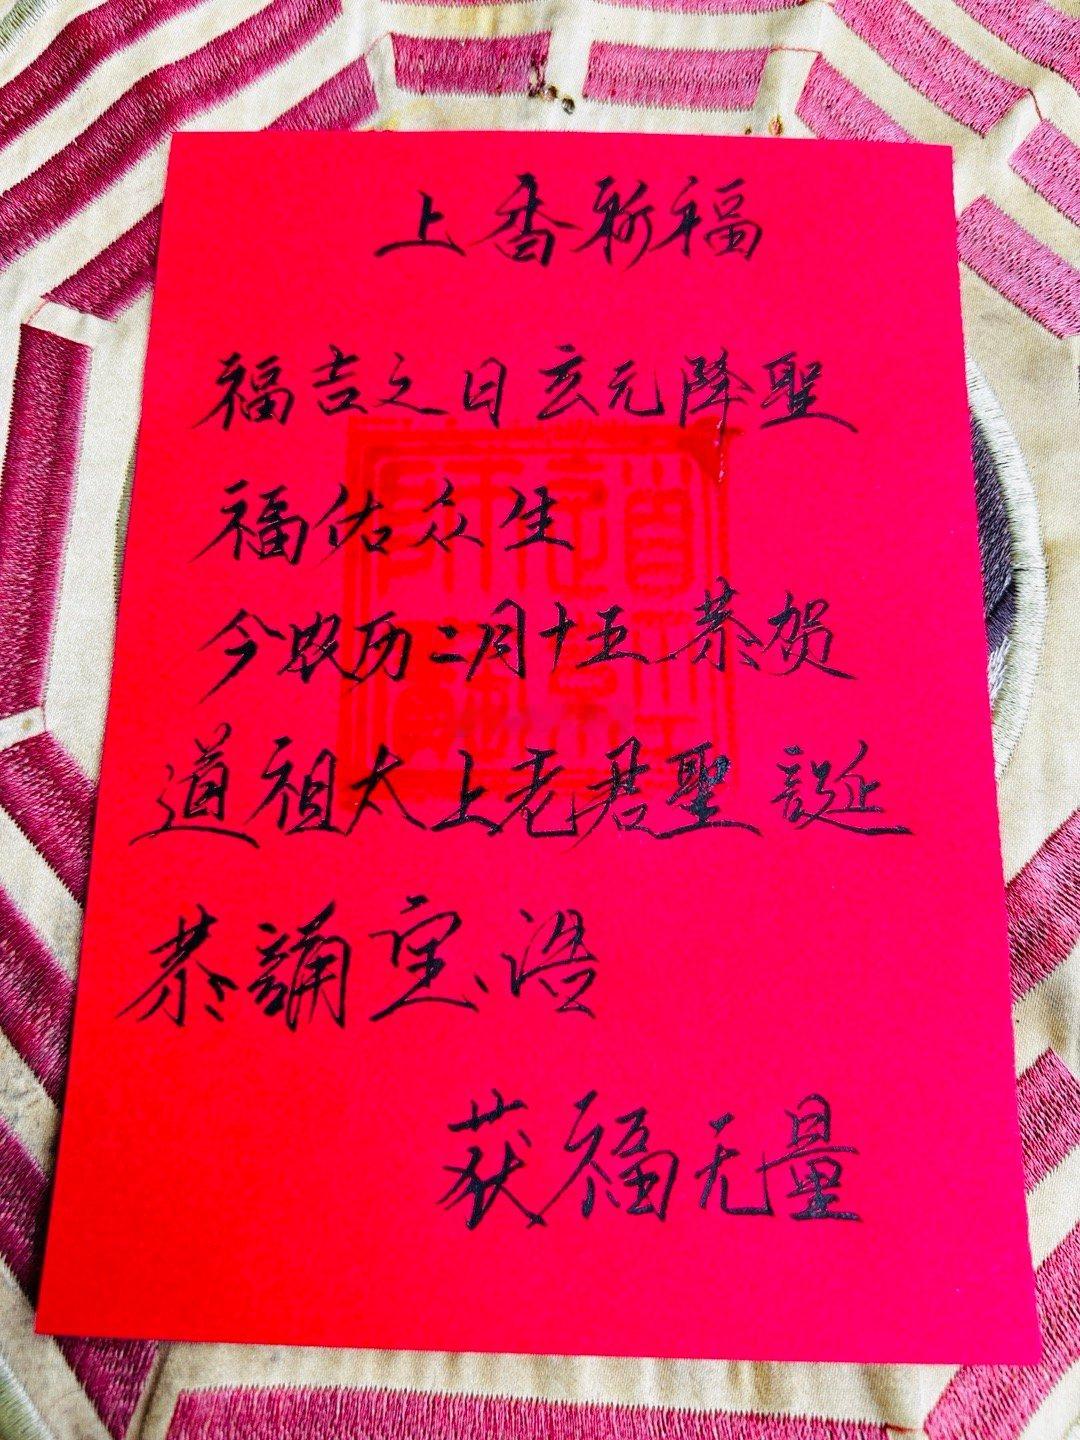 上香祈福
福吉之日玄元降聖
福佑众生
今农历二月十五恭贺
道祖太上老君聖誕
恭誦宝诰
获福无量